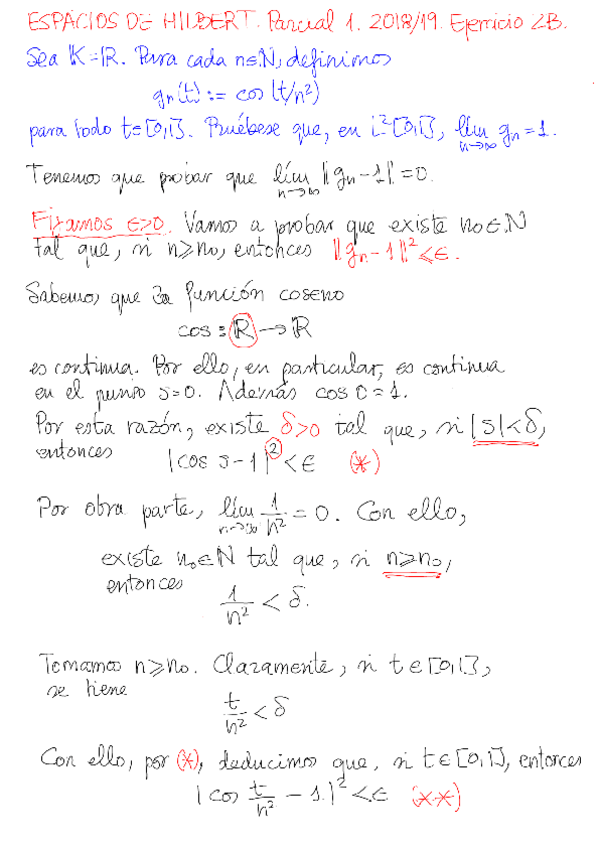 ESPACIOS DE HILBERT. Parcial 1. 2018/19. Ejercicio 2B.
Sea K=ℝ. Para cada n∈ℕ, definimos
gₙ(t) := cos(t/n²)
para todo t∈[0,1]. Pruébese que, en L²[0,1], lím gₙ = 1.
n→∞
Tenemos que probar que lím ||gₙ-1|| = 0.
n→∞
Fijamos ε>0. Vamos a probar que existe n₀∈ℕ
tal que, si n≥n₀, entonces ||gₙ-1||² < ε.
Sabemos que la función coseno
cos : ℝ → ℝ
es continua. Por ello, en particular, es continua
en el punto s=0. Además cos 0 = 1.
Por esta razón, existe δ>0 tal que, si |s|<δ,
entonces |cos s-1|² < ε (*)
Por obra parte, lím 1/n² = 0. Con ello,
n→∞
existe n₀∈ℕ tal que, si n≥n₀,
entonces
1/n² < δ.
Tomamos n≥n₀. Claramente, si t∈[0,1],
se tiene
t/n² < δ
Con ello, por (*), deducimos que, si t∈[0,1], entonces
|cos t/n² - 1|² < ε (**)